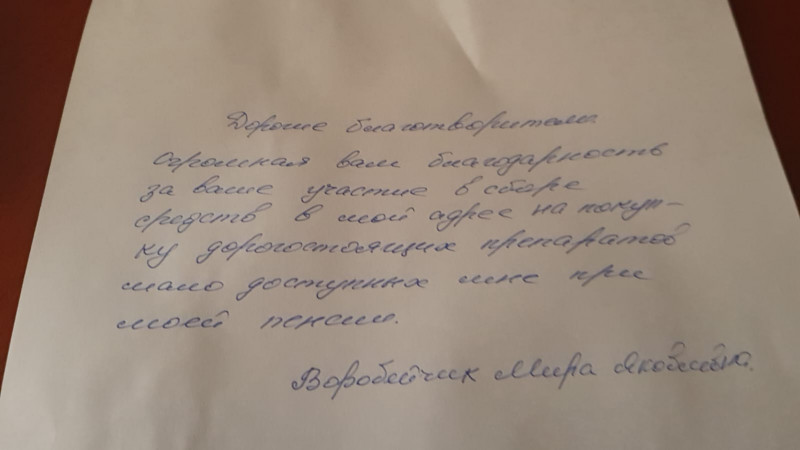 Дорогие благотворители.
Огромная вам благодарность
за ваше участие в сборе
средств в мой адрес на покуп-
ку дорогостоящих препаратов
мало доступных мне при
моей пенсии.
Воробейчик Мира Яковлевна.